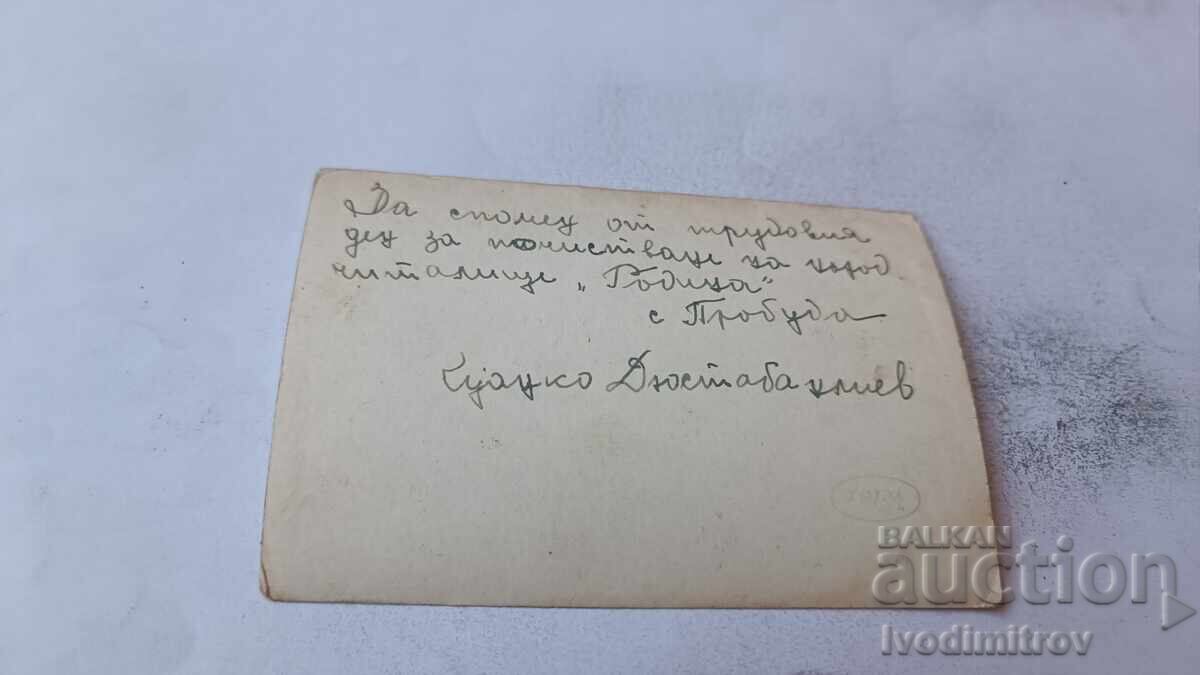 За спомен от трудовия
ден за почистване на народ.
читалище „Родина"
с Пробуда
Дюстабанлиев
BALKAN
auction
Ivodimitrov